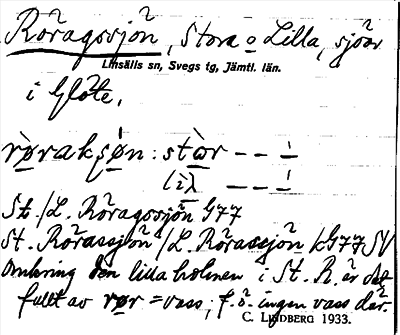 Röragssjön, Stora o Lilla, sjöar
Linsälls sn, Svegs tg, Jämtl. län.
i Glöte.
røraksøn: stør – – –
lìλ – – –
St./L. Röragssjön G77
St. Rörassjön/L. Rörassjön k G77 SV
Omkring den lilla holmen i St. R. är det
fullt av rør = vass, f.ö. ingen vass där.
C. LINDBERG 1933.